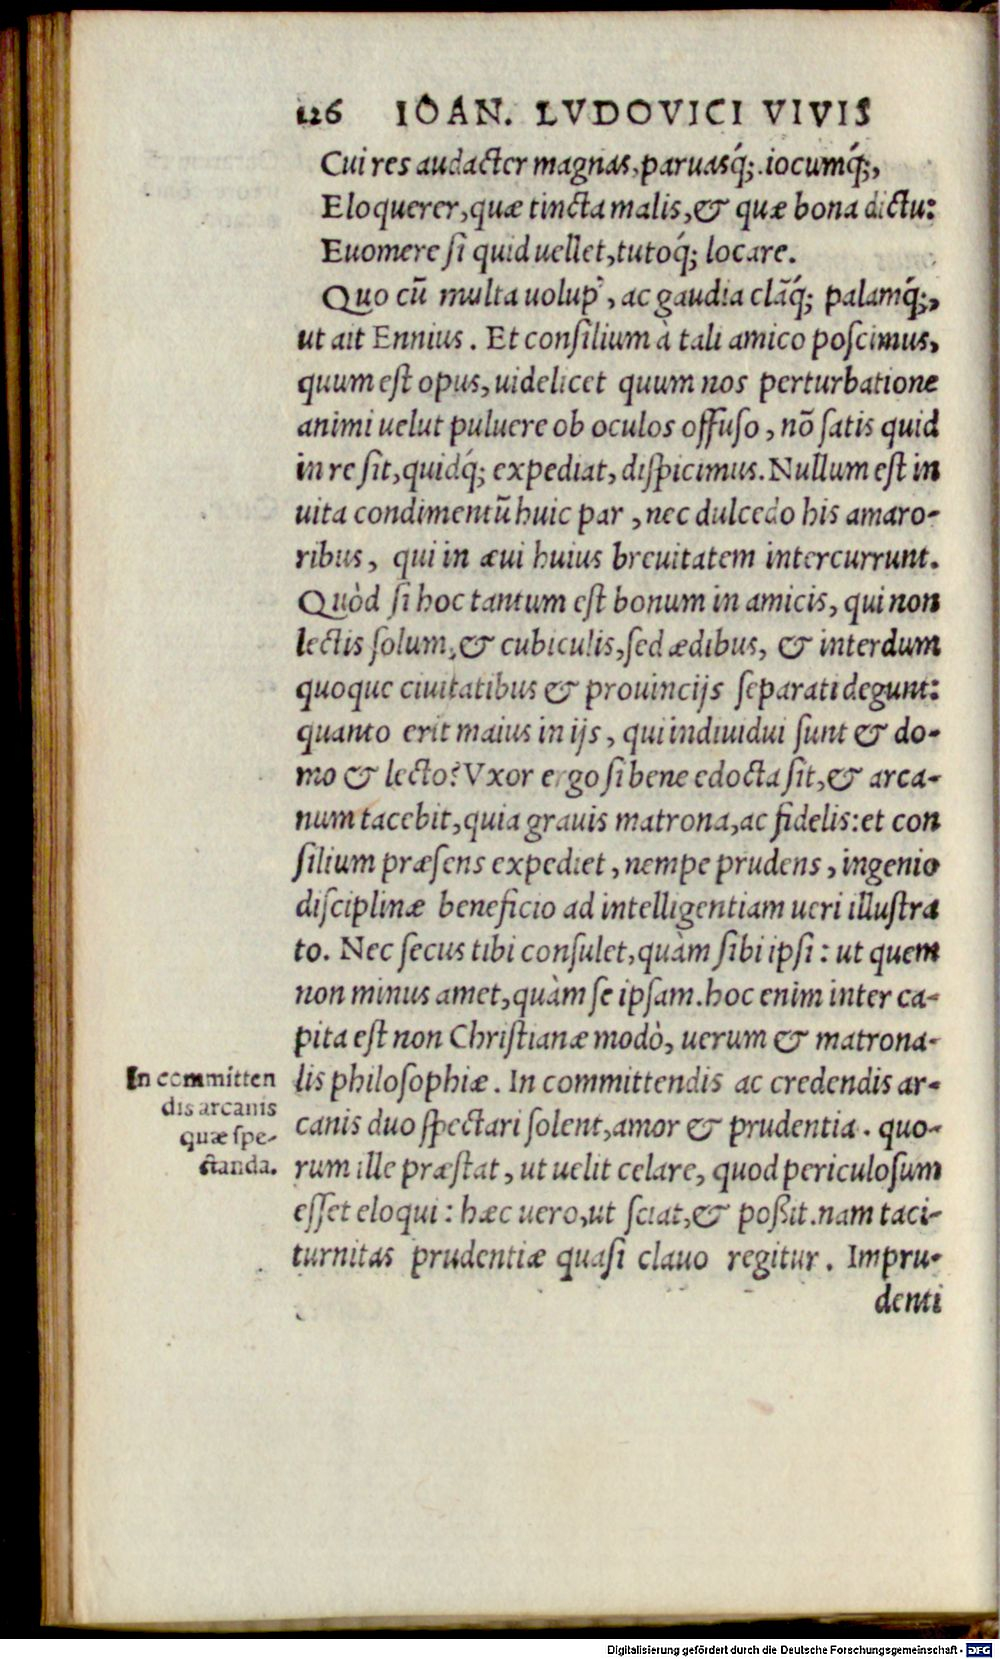 126 IOAN. LVDOVICI VIVIS
Cui res audacter magnas, paruasq́;. iocumq́;,
Eloquerer, quæ tincta malis, & quæ bona dictu:
Euomere si quid uellet, tutoq́; locare.
Quo cū multa uolup', ac gaudia clāq́; palamq́;,
ut ait Ennius. Et consilium à tali amico poscimus,
quum est opus, uidelicet quum nos perturbatione
animi uelut puluere ob oculos offuso, nō satis quid
in re sit, quidq́; expediat, dispicimus. Nullum est in
uita condimentū huic par, nec dulcedo his amaro-
ribus, qui in æui huius breuitatem intercurrunt.
Quòd si hoc tantum est bonum in amicis, qui non
lectis solum, & cubiculis, sed ædibus, & interdum
quoque ciuitatibus & prouincijs separati degunt:
quanto erit maius in ijs, qui indiuidui sunt & do-
mo & lecto? Vxor ergo si bene edocta sit, & arca-
num tacebit, quia grauis matrona, ac fidelis: et con
silium præsens expediet, nempe prudens, ingenio
disciplinæ beneficio ad intelligentiam ueri illustra
to. Nec secus tibi consulet, quàm sibi ipsi: ut quem
non minus amet, quàm se ipsam. hoc enim inter ca-
pita est non Christianæ modò, uerum & matrona-
lis philosophiæ. In committendis ac credendis ar-
canis duo spectari solent, amor & prudentia. quo-
rum ille præstat, ut uelit celare, quod periculosum
esset eloqui: hæc uero, ut sciat, & possit. nam taci-
turnitas prudentiæ quasi clauo regitur. Impru-
denti
In committen
dis arcanis
quæ spe-
ctanda.
Digitalisierung gefördert durch die Deutsche Forschungsgemeinschaft - DFG